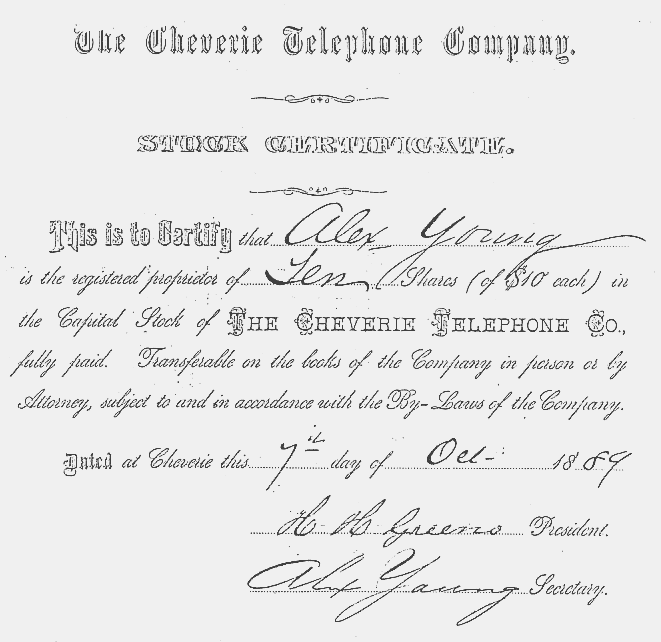 The Cheverie Telephone Company.
STOCK CERTIFICATE.
This is to Certify that Alex Young
is the registered proprietor of Ten Shares (of $10 each) in
the Capital Stock of THE CHEVERIE TELEPHONE CO.,
fully paid. Transferable on the books of the Company in person or by
Attorney, subject to and in accordance with the By-Laws of the Company.
Dated at Cheverie this 7th day of Oct- 1889
H H Greeno President.
Alex Young Secretary.